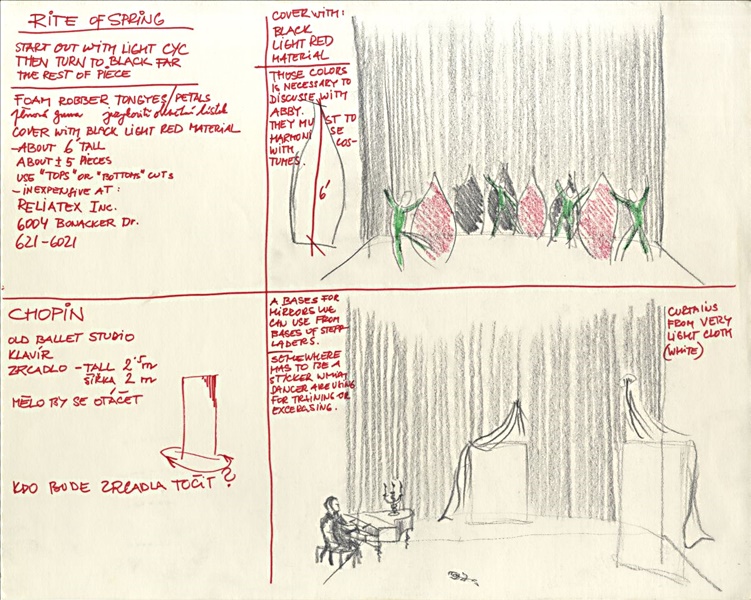 RITE OF SPRING
START OUT WITH LIGHT CYC
THEN TURN TO BLACK FAR
THE REST OF PIECE
FOAM ROBBER TONGYES/PETALS
pěnová guma
COVER WITH BLACK LIGHT RED MATERIAL
- ABOUT 6' TALL
ABOUT ± 5 PIECES
USE "TOPS" OR "BOTTOMS" CUTS
- INEXPENSIVE AT:
RELIATEX INC.
6004 BONACKER DR.
621-6021
COVER WITH:
BLACK
LIGHT RED
MATERIAL
THOSE COLORS
IS NECESSARY TO
DISCUSSE WITH
ABBY.
THEY MUST TO
HARMONISE
WITH COS-
TUMES.
6'
CHOPIN
OLD BALLET STUDIO
KLAVÍR
ZRCADLO - TALL 2'5 m
ŠÍŘKA 2 m
MĚLO BY SE OTÁČET
KDO BUDE ZRCADLA TOČIT?
A BASES FOR
MIRRORS WE
CAN USE FROM
BASES OF STEPP-
LADERS.
SOMEWHERE
HAS TO BE A
STICKER
DANCER ARE USING
FOR TRAINING OR
EXCERASING.
CURTAINS
FROM VERY
LIGHT CLOTH
(WHITE)